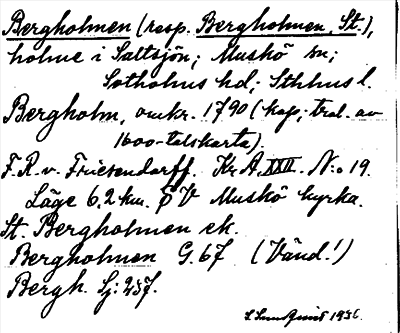 Bergholmen (resp. Bergholmen, St.),
holme i Saltsjön; Muskö sn;
Sotholms hd; Sthlms l.
Bergholm, omkr. 1790 (kop; tral. av
1600-talskarta).
F.R.v. Friesendorff. Kr.A. XXII. N:o 19.
Läge 6,2 km. ö V Muskö kyrka.
St. Bergholmen ek.
Bergholmen G. 67 (Vänd!)
Bergh. Sj: 257.
1936